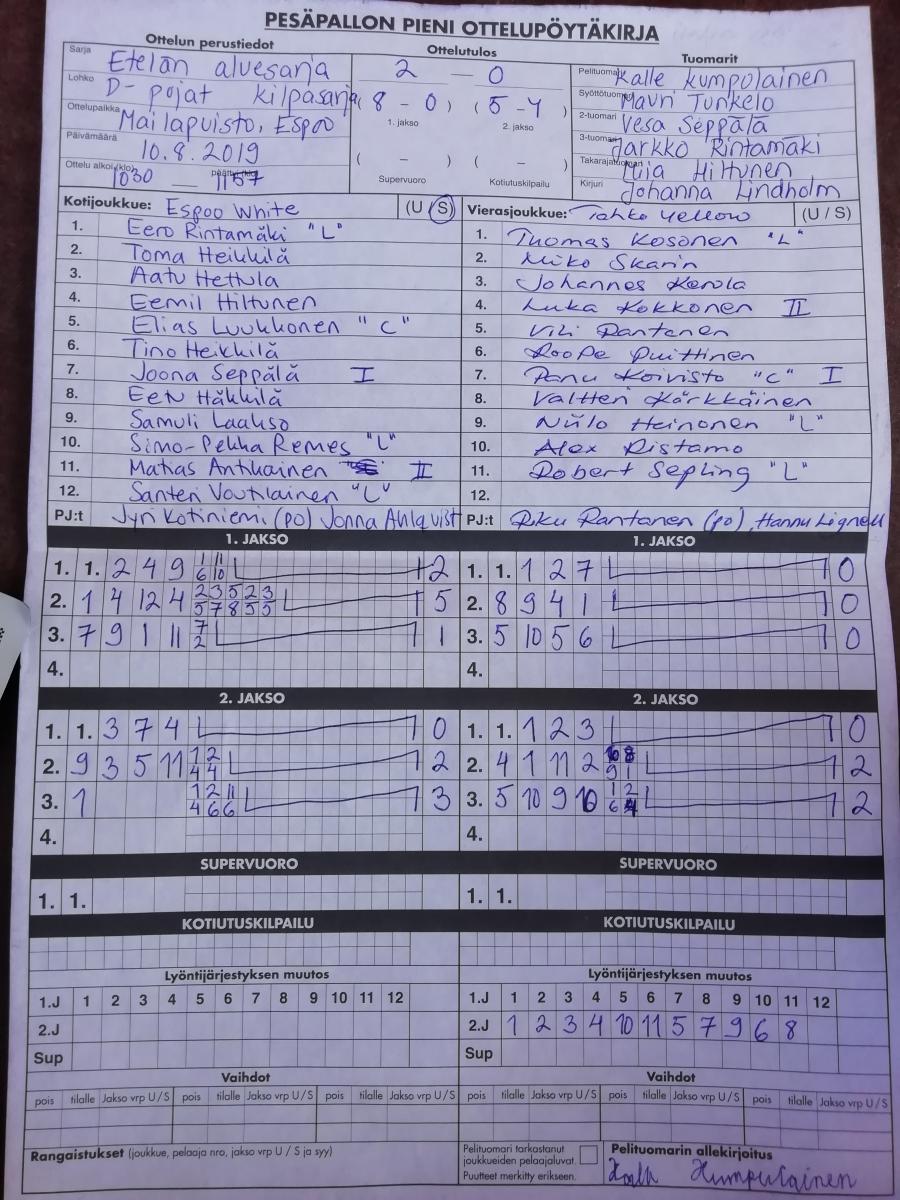 PESÄPALLON PIENI OTTELUPÖYTÄKIRJA
Ottelun perustiedot
Ottelutulos
Tuomarit
Sarja Etelän aluesarja
Lohko D-pojat kilpasarja
Ottelupaikka Mailapuisto, Espoo
Päivämäärä 10.8.2019
Ottelu alkoi (klo) 1030 — 1157
2 — 0
( 8 - 0 ) ( 5 - 4 )
1. jakso 2. jakso
( - ) ( - )
Supervuoro Kotiutuskilpailu
Pelituomari Kalle Kumpulainen
Syöttötuomari Mauri Tunkelo
2-tuomari Vesa Seppälä
3-tuomari Jarkko Rintamäki
Takarajatuomari Miia Hiltunen
Kirjuri Johanna Lindholm
Kotijoukkue: Espoo White (U / S)
1. Eero Rintamäki "L"
2. Toma Heikkilä
3. Aatu Hettula
4. Eemil Hiltunen
5. Elias Luukkonen "C"
6. Tino Heikkilä
7. Joona Seppälä I
8. Eetu Häkkilä
9. Samuli Laakso
10. Simo-Pekka Remes "L"
11. Matias Antikainen II
12. Santeri Voutilainen "L"
PJ:t Jyri Kotiniemi (po) Jonna Ahlqvist
Vierasjoukkue: Tahko Yellow (U / S)
1. Tuomas Kosonen "L"
2. Miko Skarin
3. Johannes Kerola
4. Luka Kokkonen II
5. Vili Rantanen
6. Roope Puittinen
7. Panu Koivisto "C" I
8. Valtteri Kärkkäinen
9. Niilo Heinonen "L"
10. Alex Ristamo
11. Robert Sepling "L"
12.
PJ:t Riku Rantanen (po), Hannu Lignell
1. JAKSO
1. 1. 2 4 9 1/6 11/10 2
2. 1 4 12 4 2/5 3/7 5/8 2/5 3/5 5
3. 7 9 1 11 7/2 1
4.
1. JAKSO
1. 1. 1 2 7 0
2. 8 9 4 1 0
3. 5 10 5 6 0
4.
2. JAKSO
1. 1. 3 7 4 0
2. 9 3 5 11 1/4 2/4 2
3. 1 1/4 2/6 11/6 3
4.
2. JAKSO
1. 1. 1 2 3 0
2. 4 1 11 2 10/9 8/1 2
3. 5 10 9 10 1/6 2/4 2
4.
SUPERVUORO
1. 1.
SUPERVUORO
1. 1.
KOTIUTUSKILPAILU
KOTIUTUSKILPAILU
Lyöntijärjestyksen muutos
1.J 1 2 3 4 5 6 7 8 9 10 11 12
2.J
Sup
Lyöntijärjestyksen muutos
1.J 1 2 3 4 5 6 7 8 9 10 11 12
2.J 1 2 3 4 10 11 5 7 9 6 8
Sup
Vaihdot
pois tilalle Jakso vrp U/S pois tilalle Jakso vrp U/S pois tilalle Jakso vrp U/S
Vaihdot
pois tilalle Jakso vrp U/S pois tilalle Jakso vrp U/S pois tilalle Jakso vrp U/S
Rangaistukset (joukkue, pelaaja nro, jakso vrp U / S ja syy)
Pelituomari tarkastanut
joukkueiden pelaajaluvat.
Puutteet merkitty erikseen.
Pelituomarin allekirjoitus
Kalle Kumpulainen